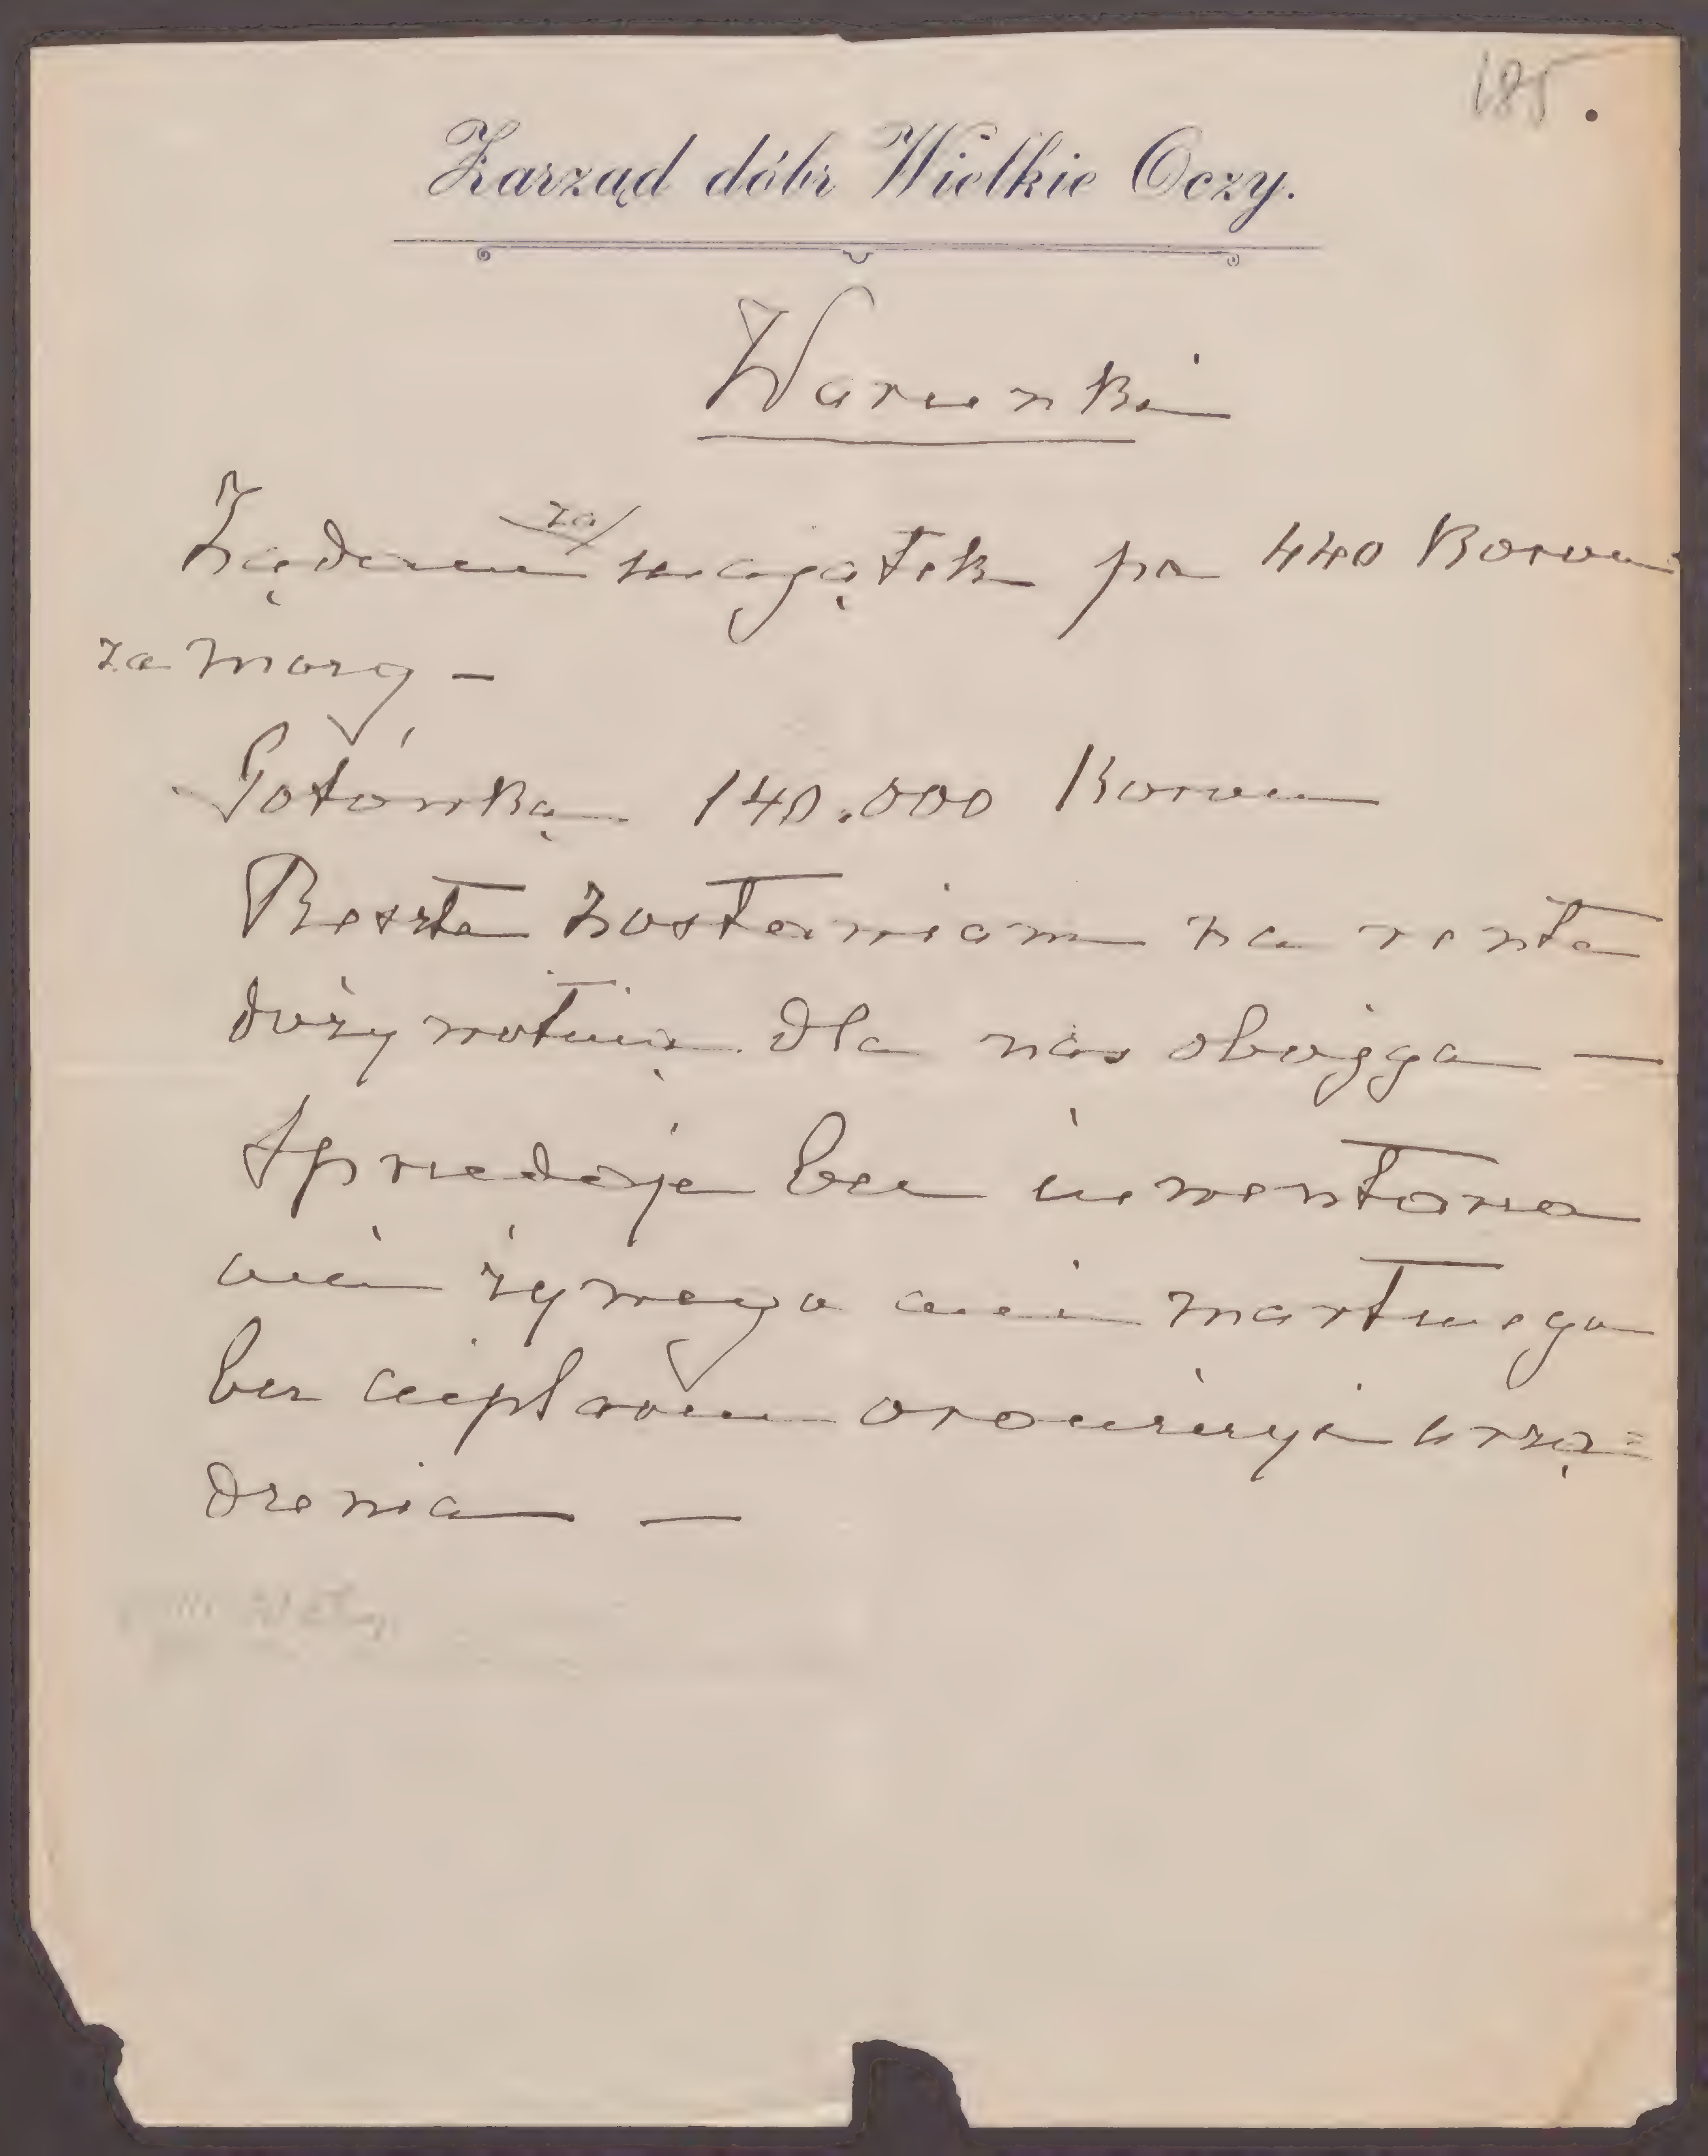 185.
Zarząd dóbr Wielkie Oczy.
Warunki
Żądam za majątek po 440 Koron
za morg —
Gotówką 140.000 Koron
Resztę zostawiam na rentę
dożywotnią dla nas obojga —
Sprzedaję bez inwentarza
ani żywego ani martwego
bez cieplarni oranżeryi urzą=
dzenia —